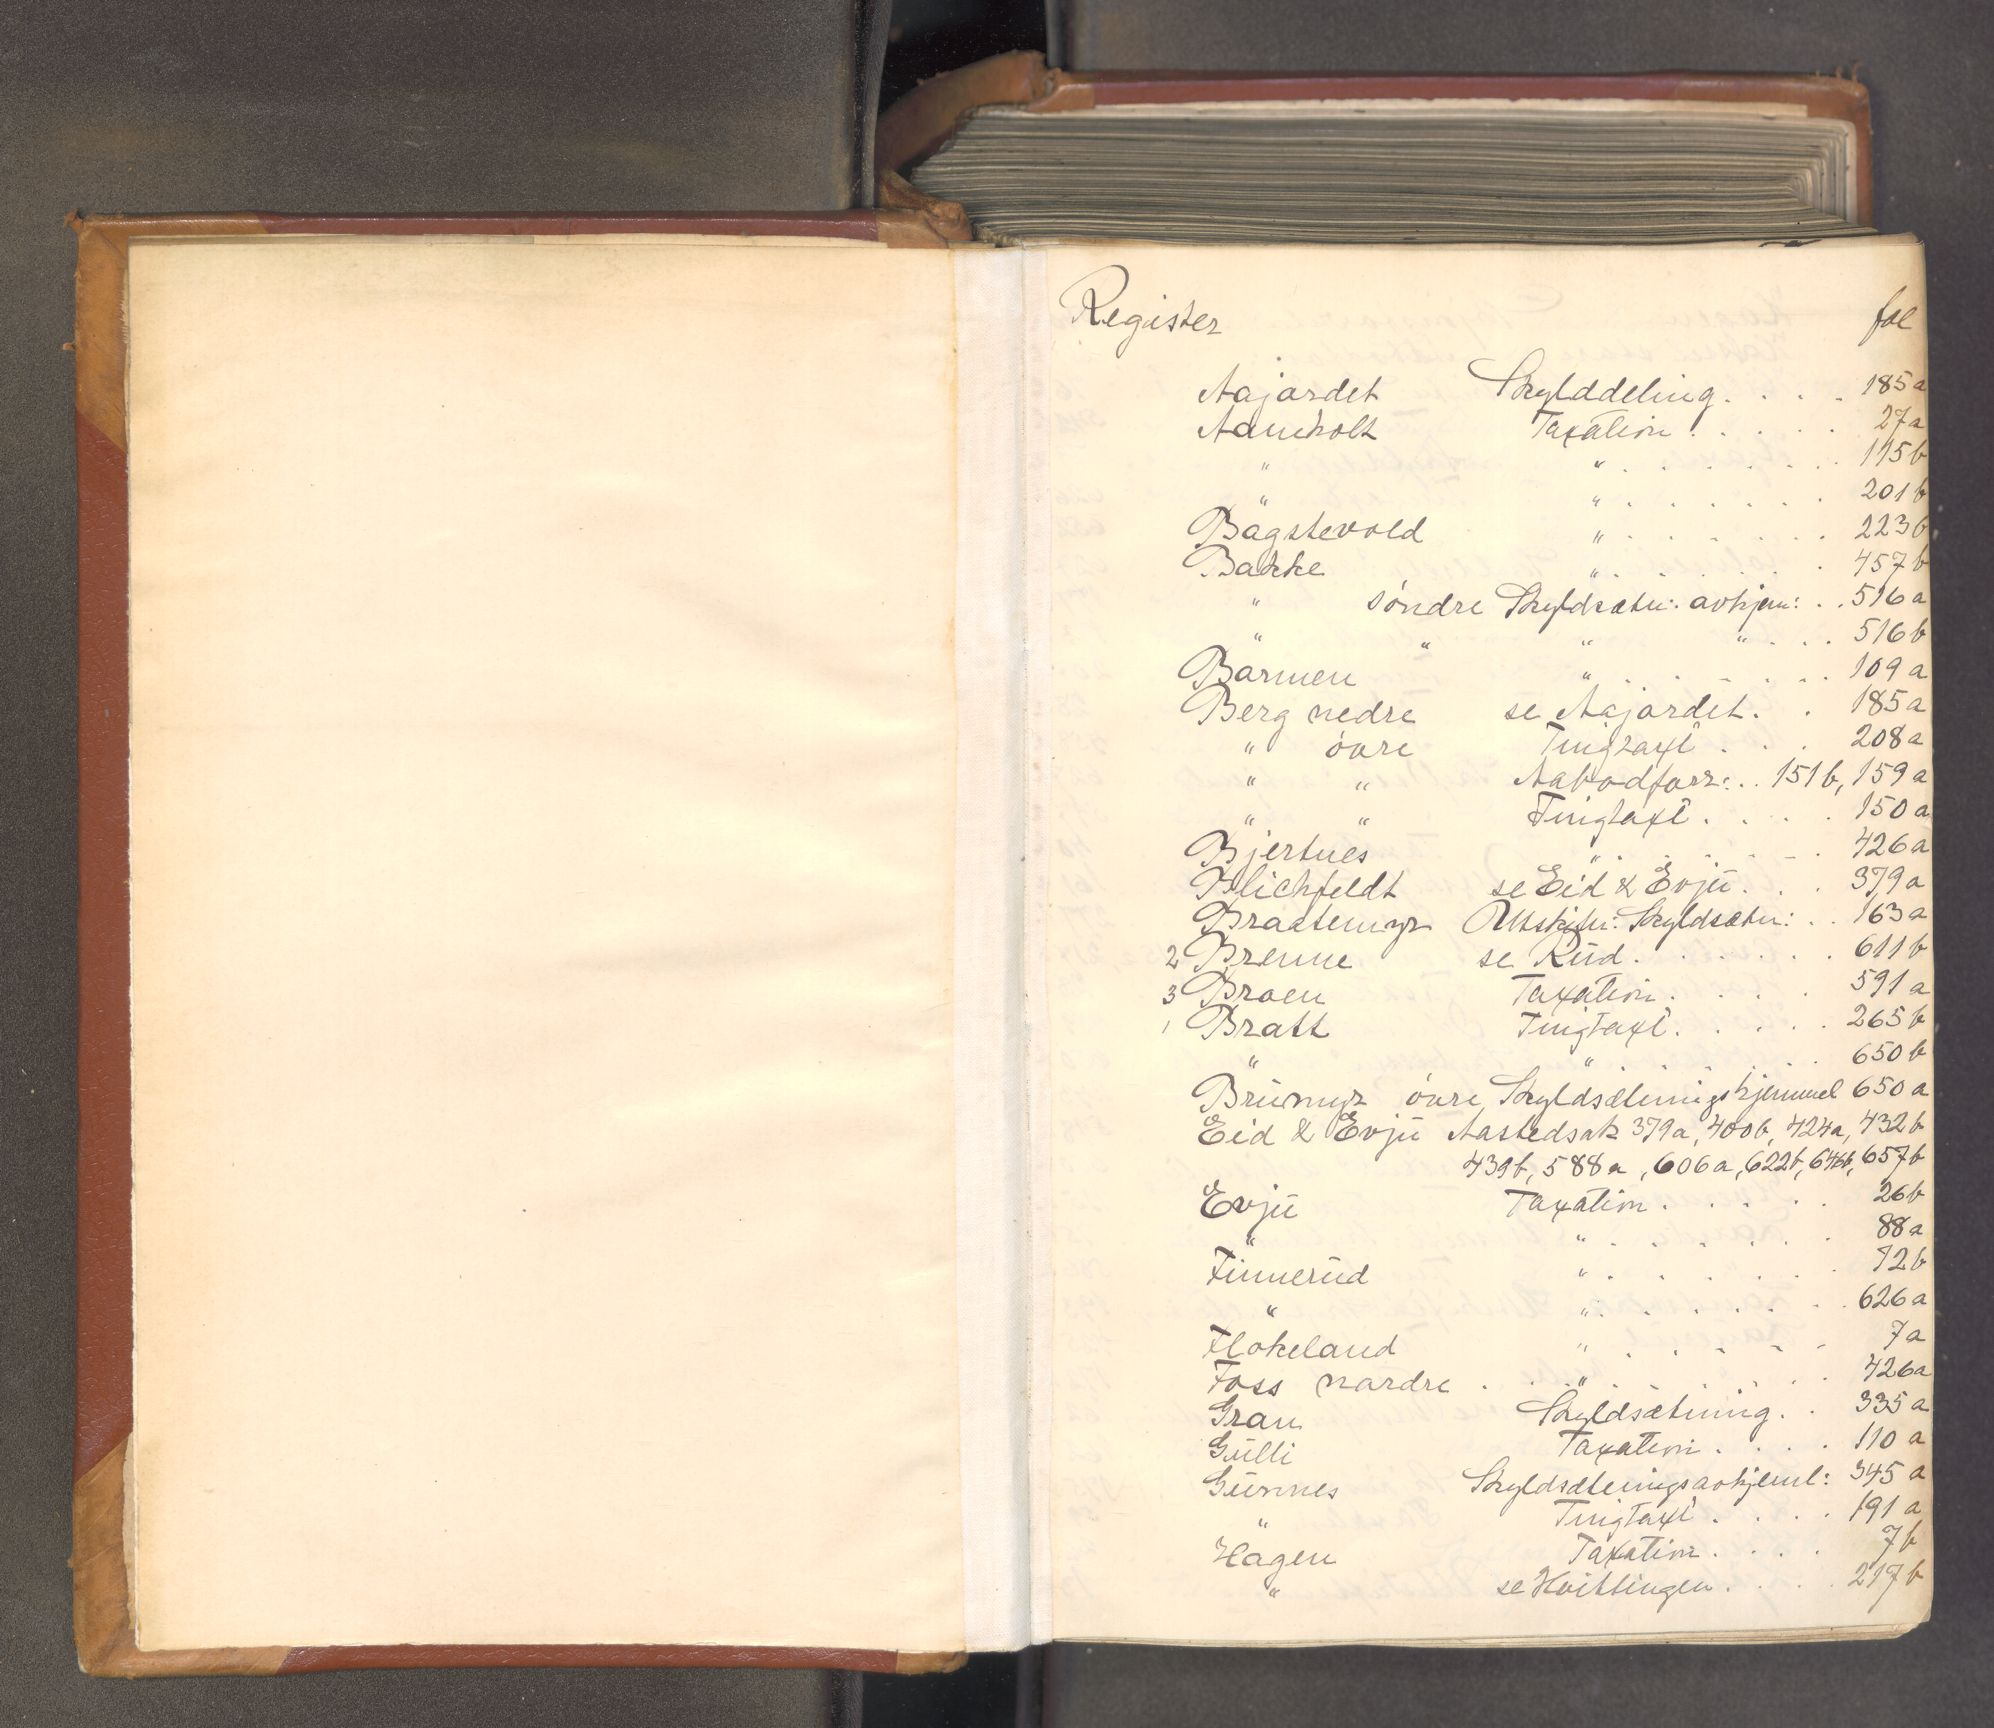 Register fol
Aajordet Skylddeling . . . . 185a
Aamholt Taxation . . . . . 27a
" " . . . . . . . 115b
" " . . . . . . 201b
Bågstevold " . . . . . . 223b
Bakke " . . . . . . 457b
" söndre Skyldsætn: avhjem: . . 516a
" " " " . . . 516b
Barmen " . . . . . . . 109a
Berg nedre se Aajordet . . 185a
" övre Tingtaxt . . . 208a
" " Aabodforr: . . 151b, 159a
" " Tingtaxt . . . . 150a
Bjertnes " . . . . . . 426a
Blichfeldt se Eid & Evju . . . 379a
Braatemyr Utskiftn: Skyldsætn: . . 163a
2 Brenne se Rud . . . . . . 611b
3 Broen Taxation . . . . 591a
1 Bratt Tingtaxt . . . . . 265b
" " . . . . . . 650b
Brumyr övre Skyldsætningshjemmel 650a
Eid & Evju Aastedsak 379a, 400b, 424a, 432b
439b, 588a, 606a, 622b, 646b, 657b
Evju Taxation . . . . . 26b
" " . . . . . . 88a
Finnerud " . . . . . . 72b
" " . . . . . . . 626a
Flokeland " . . . . . . 7a
Foss nordre . . " . . . . . . 426a
Gran Skyldsætning . . 335a
Gulli Taxation . . . . 110a
Gunnes Skyldsætningsavhjeml: 345a
" Tingtaxt . . . . 191a
Hagen Taxation . . . . 7b
" se Hvittingen . . . . 217b